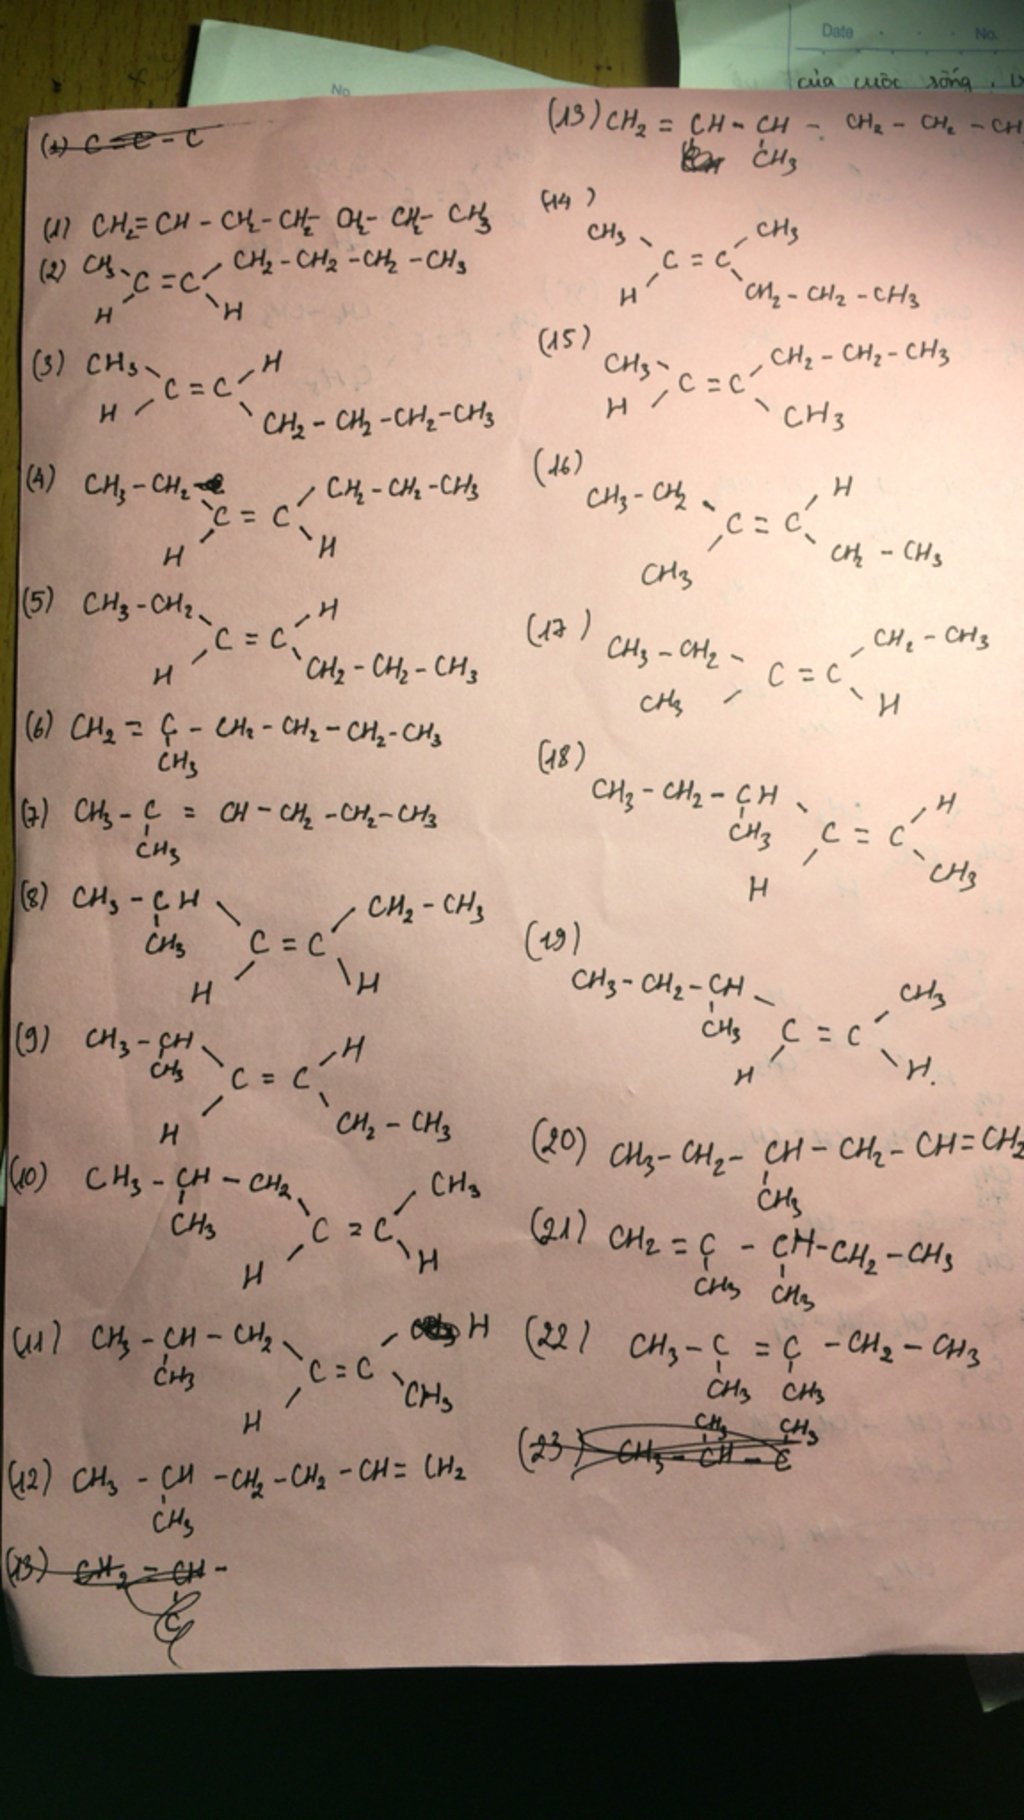 No
Date No.
của cuộc sống
(1) C = C - C
(1) CH2=CH - CH2-CH2- CH2- CH2- CH3
(2) CH3 CH2-CH2-CH2-CH3
C = C
H H
(3) CH3 H
C = C
H CH2-CH2-CH2-CH3
(4) CH3-CH2 CH2-CH2-CH3
C = C
H H
(5) CH3-CH2 H
C = C
H CH2-CH2-CH3
(6) CH2 = C - CH2-CH2-CH2-CH3
CH3
(7) CH3-C = CH-CH2-CH2-CH3
CH3
(8) CH3-CH CH2-CH3
CH3 C = C
H H
(9) CH3-CH H
CH3 C = C
H CH2-CH3
(10) CH3-CH-CH2 CH3
CH3 C = C
H H
(11) CH3-CH-CH2 H
CH3 C = C CH3
H
(12) CH3 - CH -CH2-CH2-CH= CH2
CH3
(13) CH2 = CH -
C
(13) CH2 = CH - CH - CH2 - CH2 - CH
CH3
(14)
CH3 CH3
C = C
H CH2-CH2-CH3
(15)
CH3 CH2-CH2-CH3
C = C
H CH3
(16)
CH3-CH2 H
C = C
CH3 CH2-CH3
(17)
CH3-CH2 CH2-CH3
C = C
CH3 H
(18)
CH3-CH2-CH H
CH3 C = C
H CH3
(19)
CH3-CH2-CH CH3
CH3 C = C
H H.
(20) CH3-CH2-CH-CH2-CH=CH2
CH3
(21) CH2 = C - CH-CH2-CH3
CH3 CH3
(22) CH3-C = C -CH2-CH3
CH3 CH3
CH3 CH3
(23) CH3-CH-C